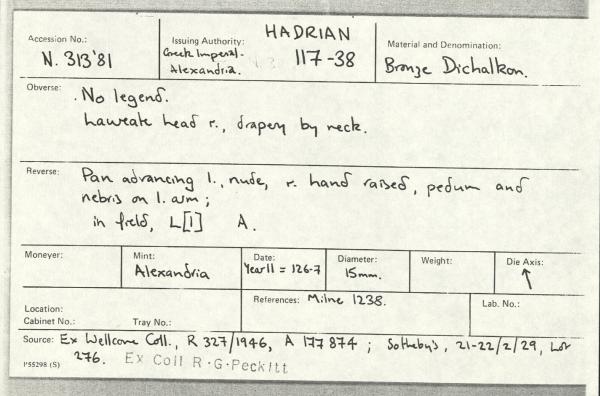 Accession No.: N. 313'81
Issuing Authority: HADRIAN
Greek Imperial-
Alexandria. 117-38
Material and Denomination:
Bronze Dichalkon.
Obverse: No legend.
Laureate head r., drapery by neck.
Reverse: Pan advancing l., nude, r. hand raised, pedum and
nebris on l. arm;
in field, L[I] A.
Moneyer:
Mint: Alexandria
Date: Year 11 = 126-7
Diameter: 15mm.
Weight:
Die Axis: ↑
Location:
Cabinet No.: Tray No.:
References: Milne 1238.
Lab. No.:
Source: Ex Wellcome Coll., R 327/1946, A 177874; Sotheby's, 21-22/2/29, Lot
276. Ex Coll R.G.Peckitt
P55298 (S)